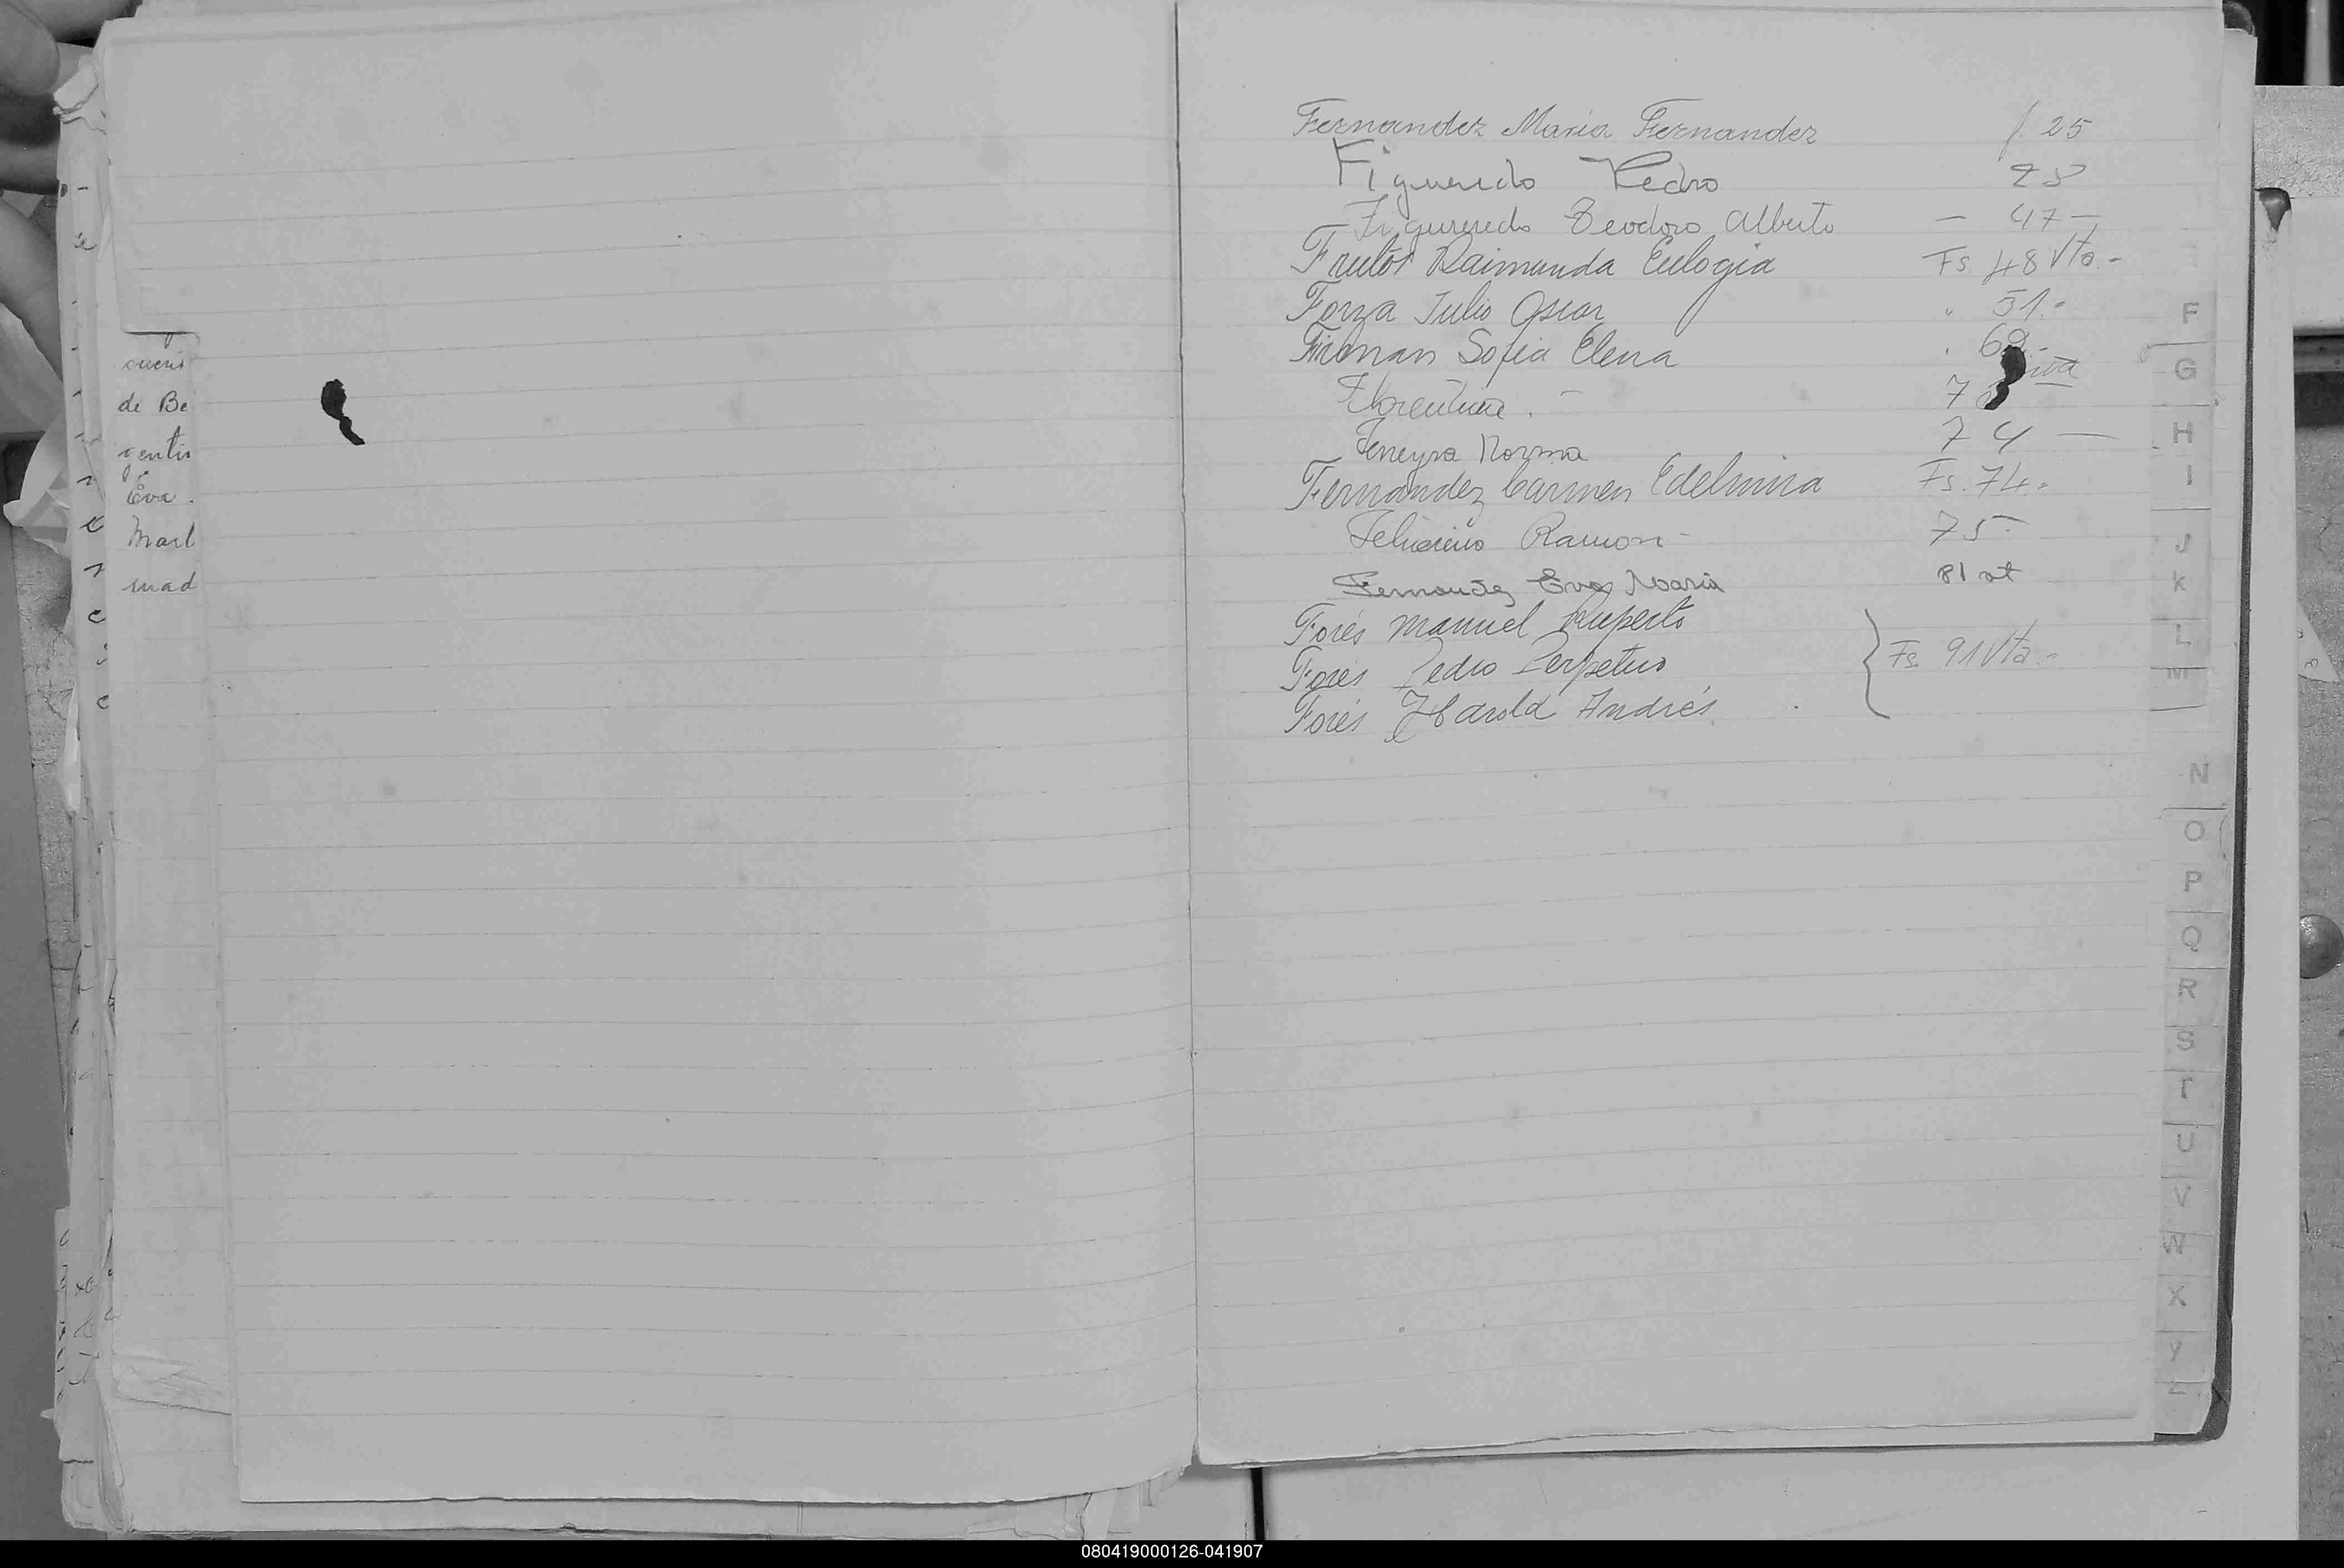 Fernandez Maria Fernandez f. 25
Figueredo Pedro 28
Figueredo Teodoro Alberto — 47 —
Frutos Raimunda Eulogia Fs. 48 Vta.-
Forza Julio Oscar " 51.-
Sofia Elena
Florentina . —
Ferreyra Norma 74 —
Fernandez Carmen Edelmira Fs. 74.-
Feliciano Ramon - 75 -
Fernandez Eva Maria 81 vt
Forés Manuel Ruperto
Forés Pedro Perpetuo Fs. 91 Vta.-
Forés Harold Andrés
de Be
Eva .
F
G
H
I
J
K
L
M
N
O
P
Q
R
S
T
U
V
W
X
Y
Z
080419000126-041907